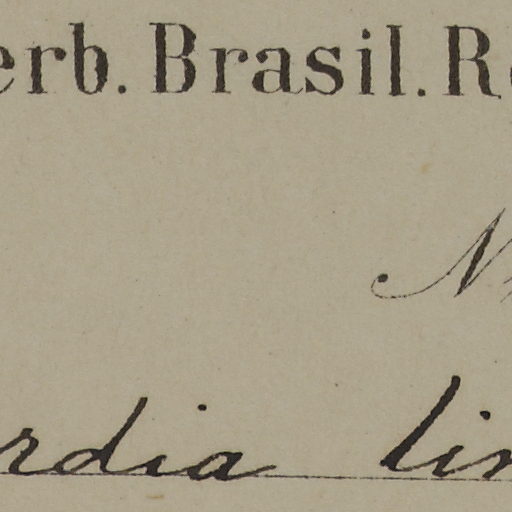 erb. Brasil. R
N
rdia lin